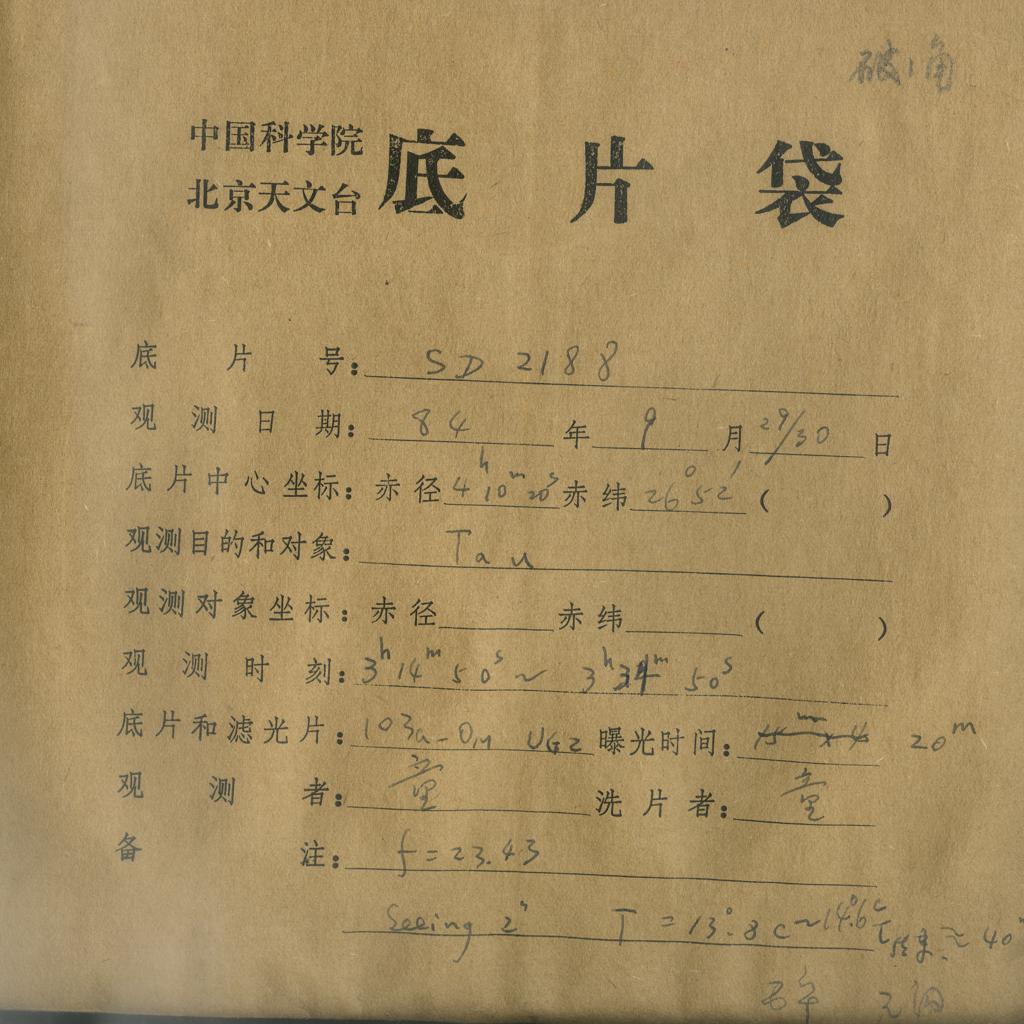 破1角
中国科学院
北京天文台
底片袋
底片号: SD 2188
观测日期: 84年9月29/30日
底片中心坐标: 赤径 4h 10m 20s 赤纬 26°52′ ( )
观测目的和对象: Tau
观测对象坐标: 赤径 赤纬 ( )
观测时刻: 3h 14m 50s ~ 3h 34m 50s
底片和滤光片: 103a-O UG2 曝光时间: 15m x 4 20m
观测者: 童 洗片者: 童
备注: f=23.43
Seeing 2" T = 13°.8 C ~ 14°.6 C ≈ 40